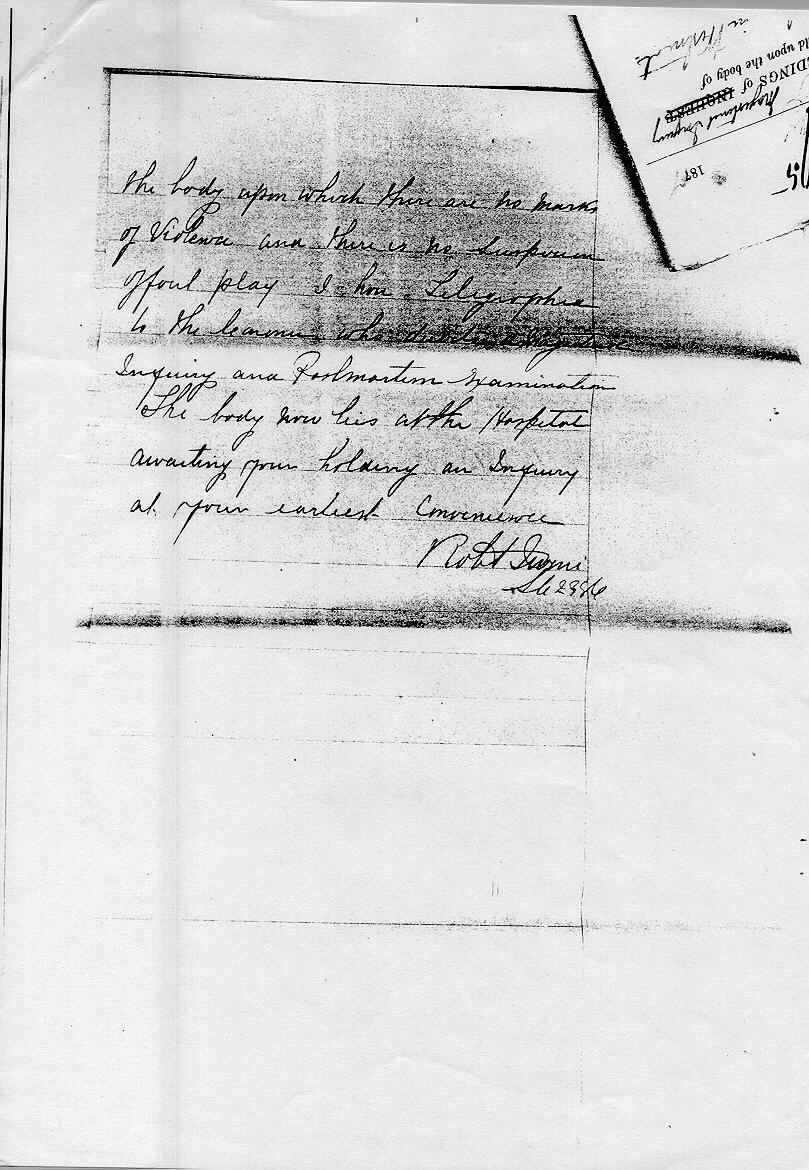 the body upon which there are no marks
of Violence and there is no Suspicion
of foul play I have Telegraphed
to the Coroner who directed a Magisterial
Inquiry and Postmortem Examination
The body now lies at the Hospital
awaiting your holding an Inquiry
at your earliest Convenience
Robt
2996
DINGS of INQUEST
Magisterial Inquiry
ld upon the body of
187